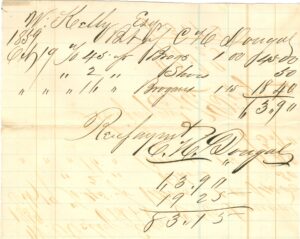 W. Kelly Esqr
1859 Bot of C H Dougal
Oct 19 To 45 pr Brogs 1 00 $45.00
" " 2 " Shoes 50
" " 16 " Brogans 1 15 18 40
63.90
C. H. Dougal
63.90
19 25
83.15